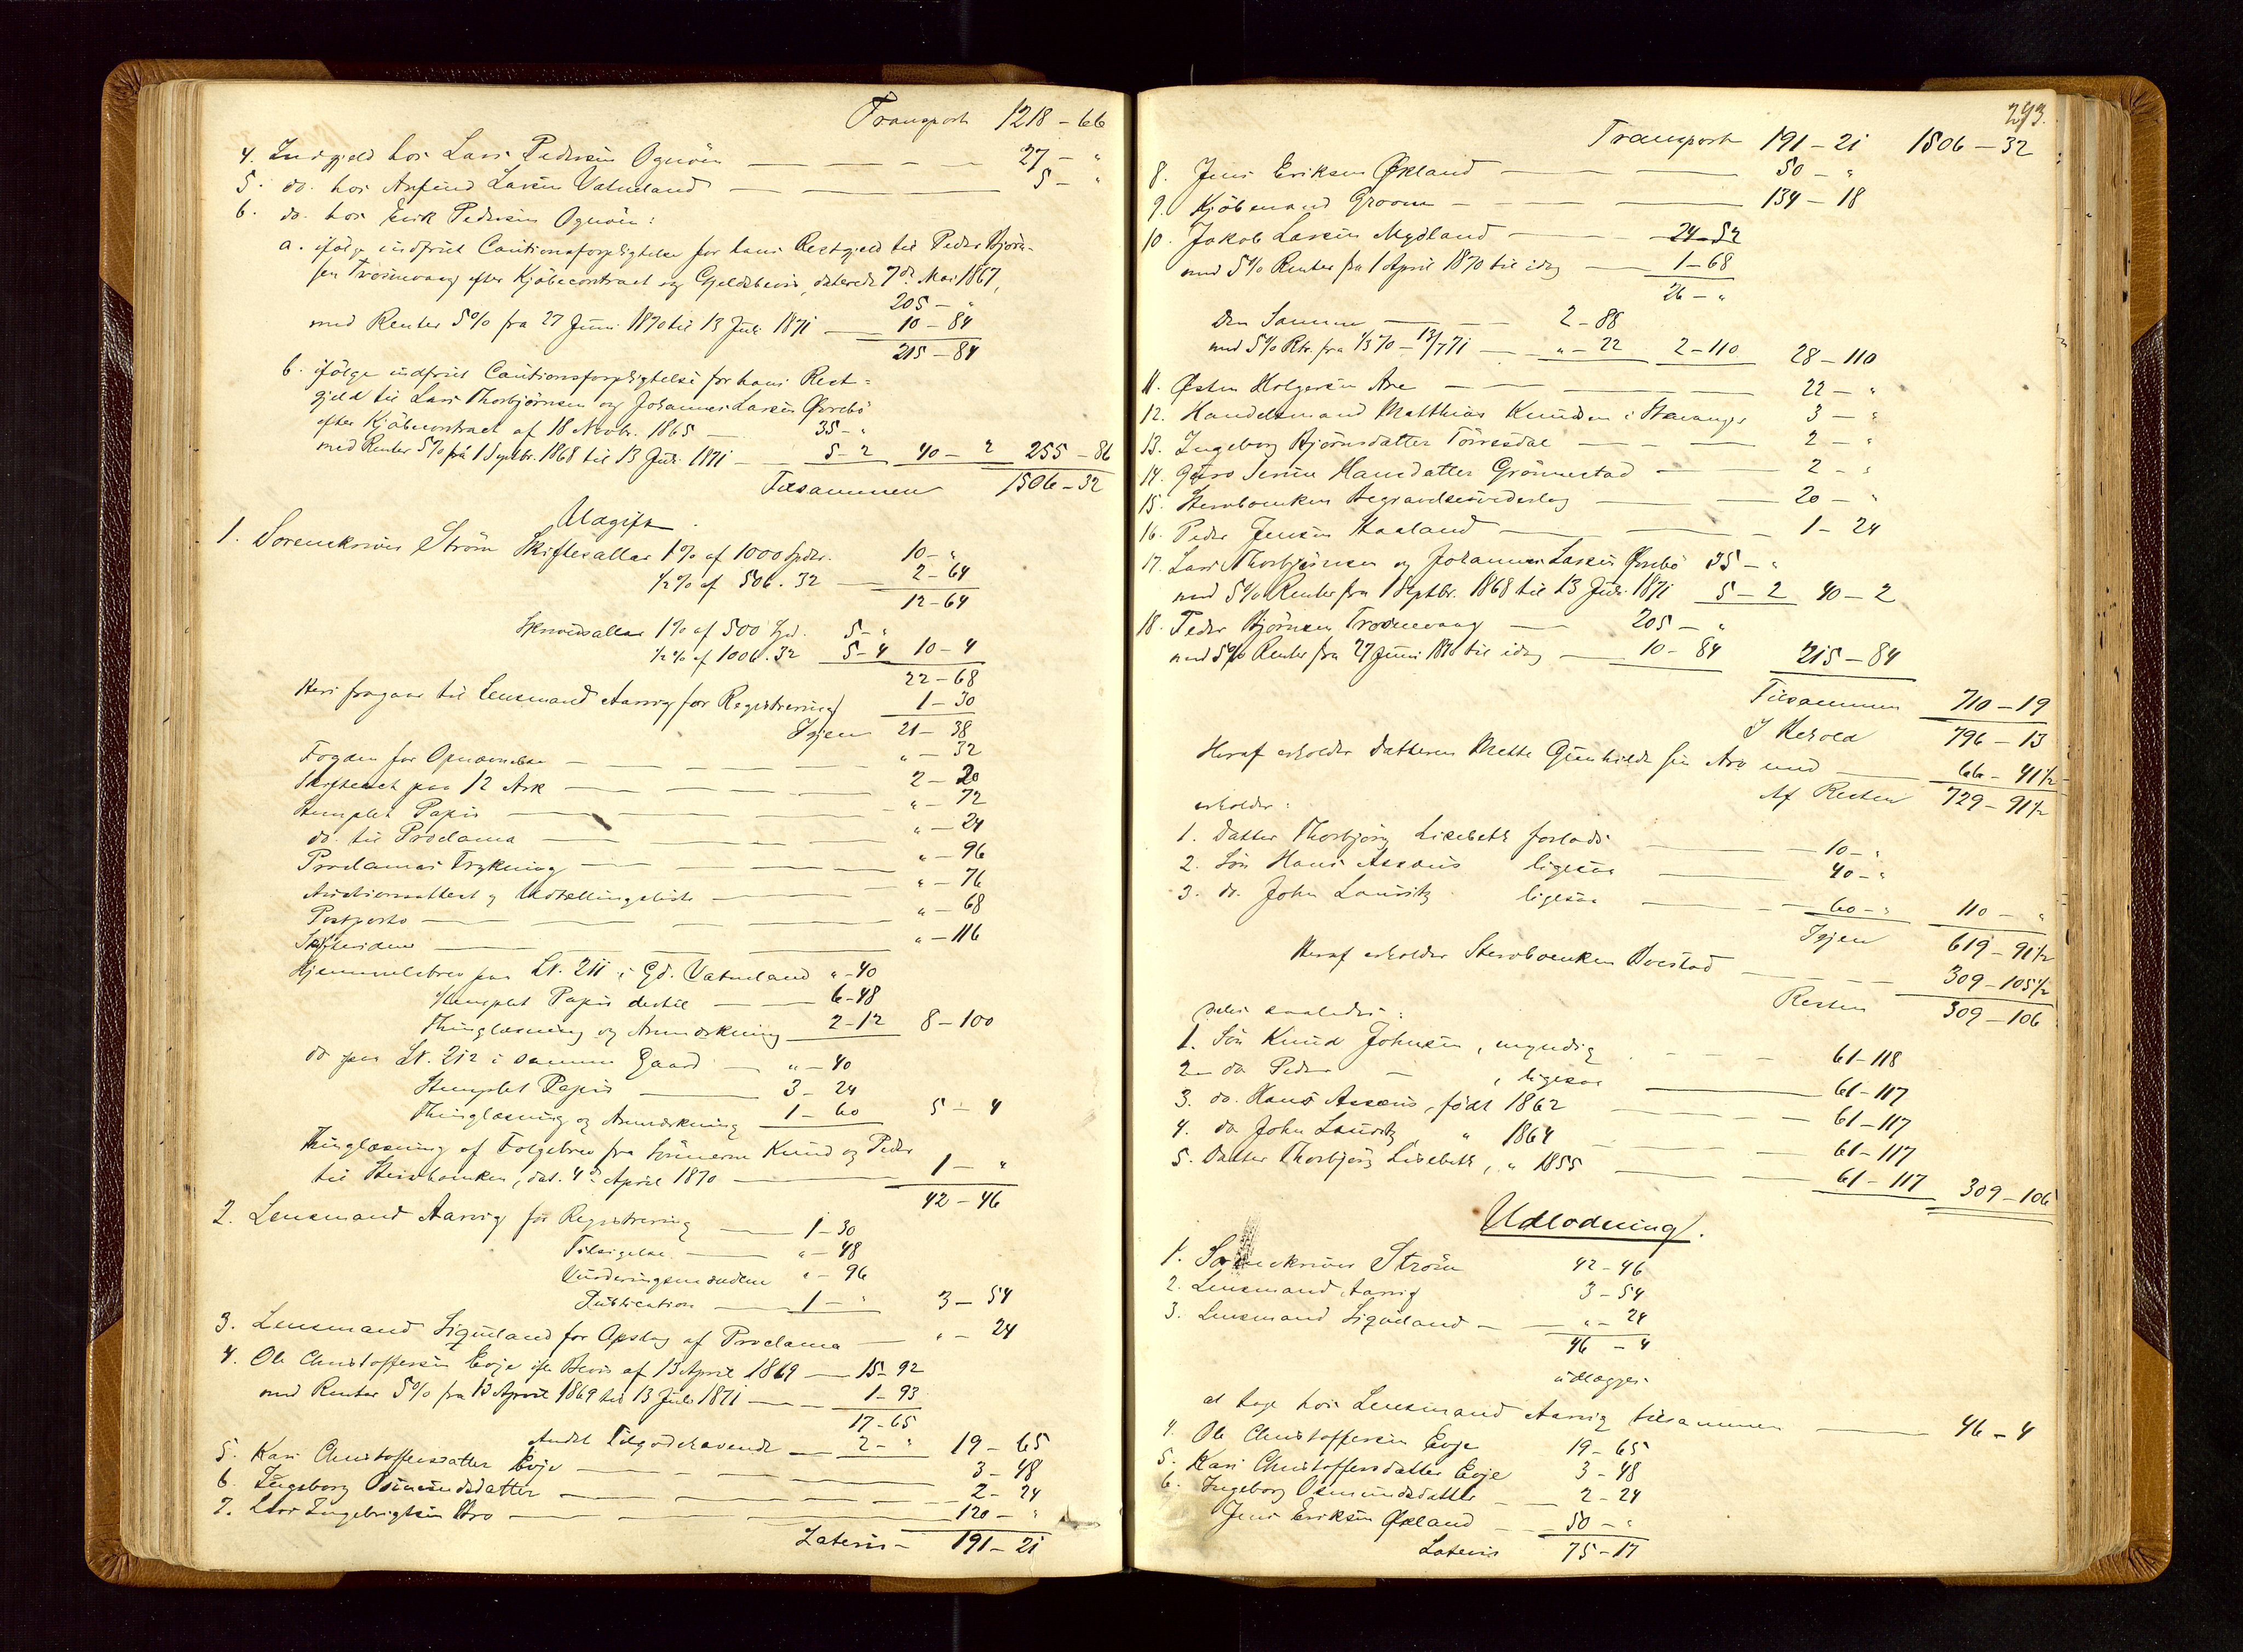 Transport 1218 – 66
4. Indgjeld hos Lars Pedersen Ognøen — 27 – "
5. do. hos Anfind Larsen Vatneland — 5 – "
6. do. hos Erik Pedersen Ognøen:
a. ifølge indfriet Cautionsforpligtelse for hans Restgjeld til Peder Bjørn-
sen Trosnevaag efter Kjøbecontract og Gjeldsbevis, dateret 7de Mai 1867,
205 – "
med Renter 5% fra 27 Juni 1870 til 13 Juli 1871 — 10 – 84
215 – 84
b. ifølge indfriet Cautionsforpligtelse for hans Rest-
gjeld til Lars Thorbjørnsen og Johannes Larsen Øvrebø
efter Kjøbecontract af 18 Novbr. 1865 — 35 – "
med Renter 5% fra 1 Septbr. 1868 til 13 Juli 1871 — 5 – 2 40 – 2 255 – 86
Tilsammen 1506 – 32
Udgift.
1. Sorenskriver Strøm Skiftesallar 1% af 1000 Spdr. 10 – "
½% af 506. 32 — 2 – 64
12 – 64
Skrivesallar 1% af 500 Spd. 5 – "
½% af 1006. 32 5 – 4 10 – 4
22 – 68
Heri fragaar til Lensmand Aarvig for Registrering 1 – 30
Igjen 21 – 38
Fogden for Opnævnelse — " – 32
Skiftebret paa 12 Ark — 2 – 20
Stemplet Papir — " – 72
do. til Proclama — " – 24
Proclamas Trykning — " – 96
Auctionsattest og Udstillingsliste — " – 76
Postporto — " – 68
Skiftevidner — " – 116
Hjemmelsbrev paa Lt. 211 i Gd. Vatneland " – 40
Stemplet Papir dertil — 6 – 48
Thinglæsning og Anmærkning 2 – 12 8 – 100
do paa Lt. 212 i samme Gaard — " – 40
Stemplet Papir — 3 – 24
Thinglæsning og Anmærkning 1 – 60 5 – 4
Thinglæsning af Følgebrev fra Sønnerne Knud og Peder
til Stervboenken, dat. 4de April 1870 — 1 – "
42 – 46
2. Lensmand Aarvig for Registrering — 1 – 30
Tilsigelse — " – 48
Vurderingsmændene " – 96
Publication — 1 – " 3 – 54
3. Lensmand Sigveland for Opslag af Proclama — " – 24
4. Ole Christoffersen Eoje efter Bevis af 13 April 1869 — 15 – 92
med Renter 5% fra 13 April 1869 til 13 Juli 1871 — 1 – 93
17 – 65
Andet Tilgodehavende — 2 – " 19 – 65
5. Kari Christoffersdatter Eoje — 3 – 48
6. Ingeborg Osmundsdatter — 2 – 24
7. Lars Ingebrigtsen Bro — 120 – "
Lateris – 191 – 21
293.
Transport 191 – 21 1506 – 32
8. Jens Eriksen Økland — 50 – "
9. Kjøbmand Groom — 134 – 18
10. Jakob Larsen Mydland — 24 – 52
med 5% Renter fra 1 April 1870 til idag — 1 – 68
26 – "
Den Samme — 2 – 88
med 5% Rtr. fra 1/5 70 – 13/7 71 — " – 22 2 – 110 28 – 110
11. Østen Holgersen Are — 22 – "
12. Handelsmand Matthias Knudsen i Stavanger 3 – "
13. Ingeborg Bjørnsdatter Tørresdal — 2 – "
14. Guro Serine Hansdatter Grønnestad — 2 – "
15. Stervboenkens Begravelsesvederlag — 20 – "
16. Peder Jensen Haaland — 1 – 24
17. Lars Thorbjørnsen og Johannes Larsen Øvrebø 35 – "
med 5% Renter fra 1 Septbr. 1868 til 13 Juli 1871 5 – 2 40 – 2
18. Peder Bjørnsen Trosnevaag — 205 – "
med 5% Renter fra 27 Juni 1870 til idag — 10 – 84 215 – 84
Tilsammen 710 – 19
I Behold 796 – 13
Heraf erholder Datteren Mette Gunhilde sin Arv med — 66 – 41½
Af Resten 729 – 91½
erholder:
1. Datter Thorbjørg Lisebeth forlods — 10 – "
2. Søn Hans Assæus ligesaa — 40 – "
3. do. John Lauritz ligesaa — 60 – " 110 – "
Igjen 619 – 91½
Heraf erholder Stervboenken Boeslod — 309 – 105½
Resten 309 – 106
deles saaledes:
1. Søn Knud Johnsen, myndig — 61 – 118
2 – do Peder – , ligesaa — 61 – 117
3. do. Hans Assæus, født 1862 — 61 – 117
4. do John Lauritz, " 1864 — 61 – 117
5. Datter Thorbjørg Lisebeth, " 1855 — 61 – 117 309 – 106
Udlodning.
1. Sorenskriver Strøm 42 – 46
2. Lensmand Aarvig 3 – 54
3. Lensmand Sigveland — " – 24
46 – 4
udlægges
at tage hos Lensmand Aarvig tilsammen — 46 – 4
4. Ole Christoffersen Eoje 19 – 65
5. Kari Christoffersdatter Eoje 3 – 48
6. Ingeborg Osmundsdatter — 2 – 24
Jens Eriksen Økland — 50 – "
Lateris 75 – 17